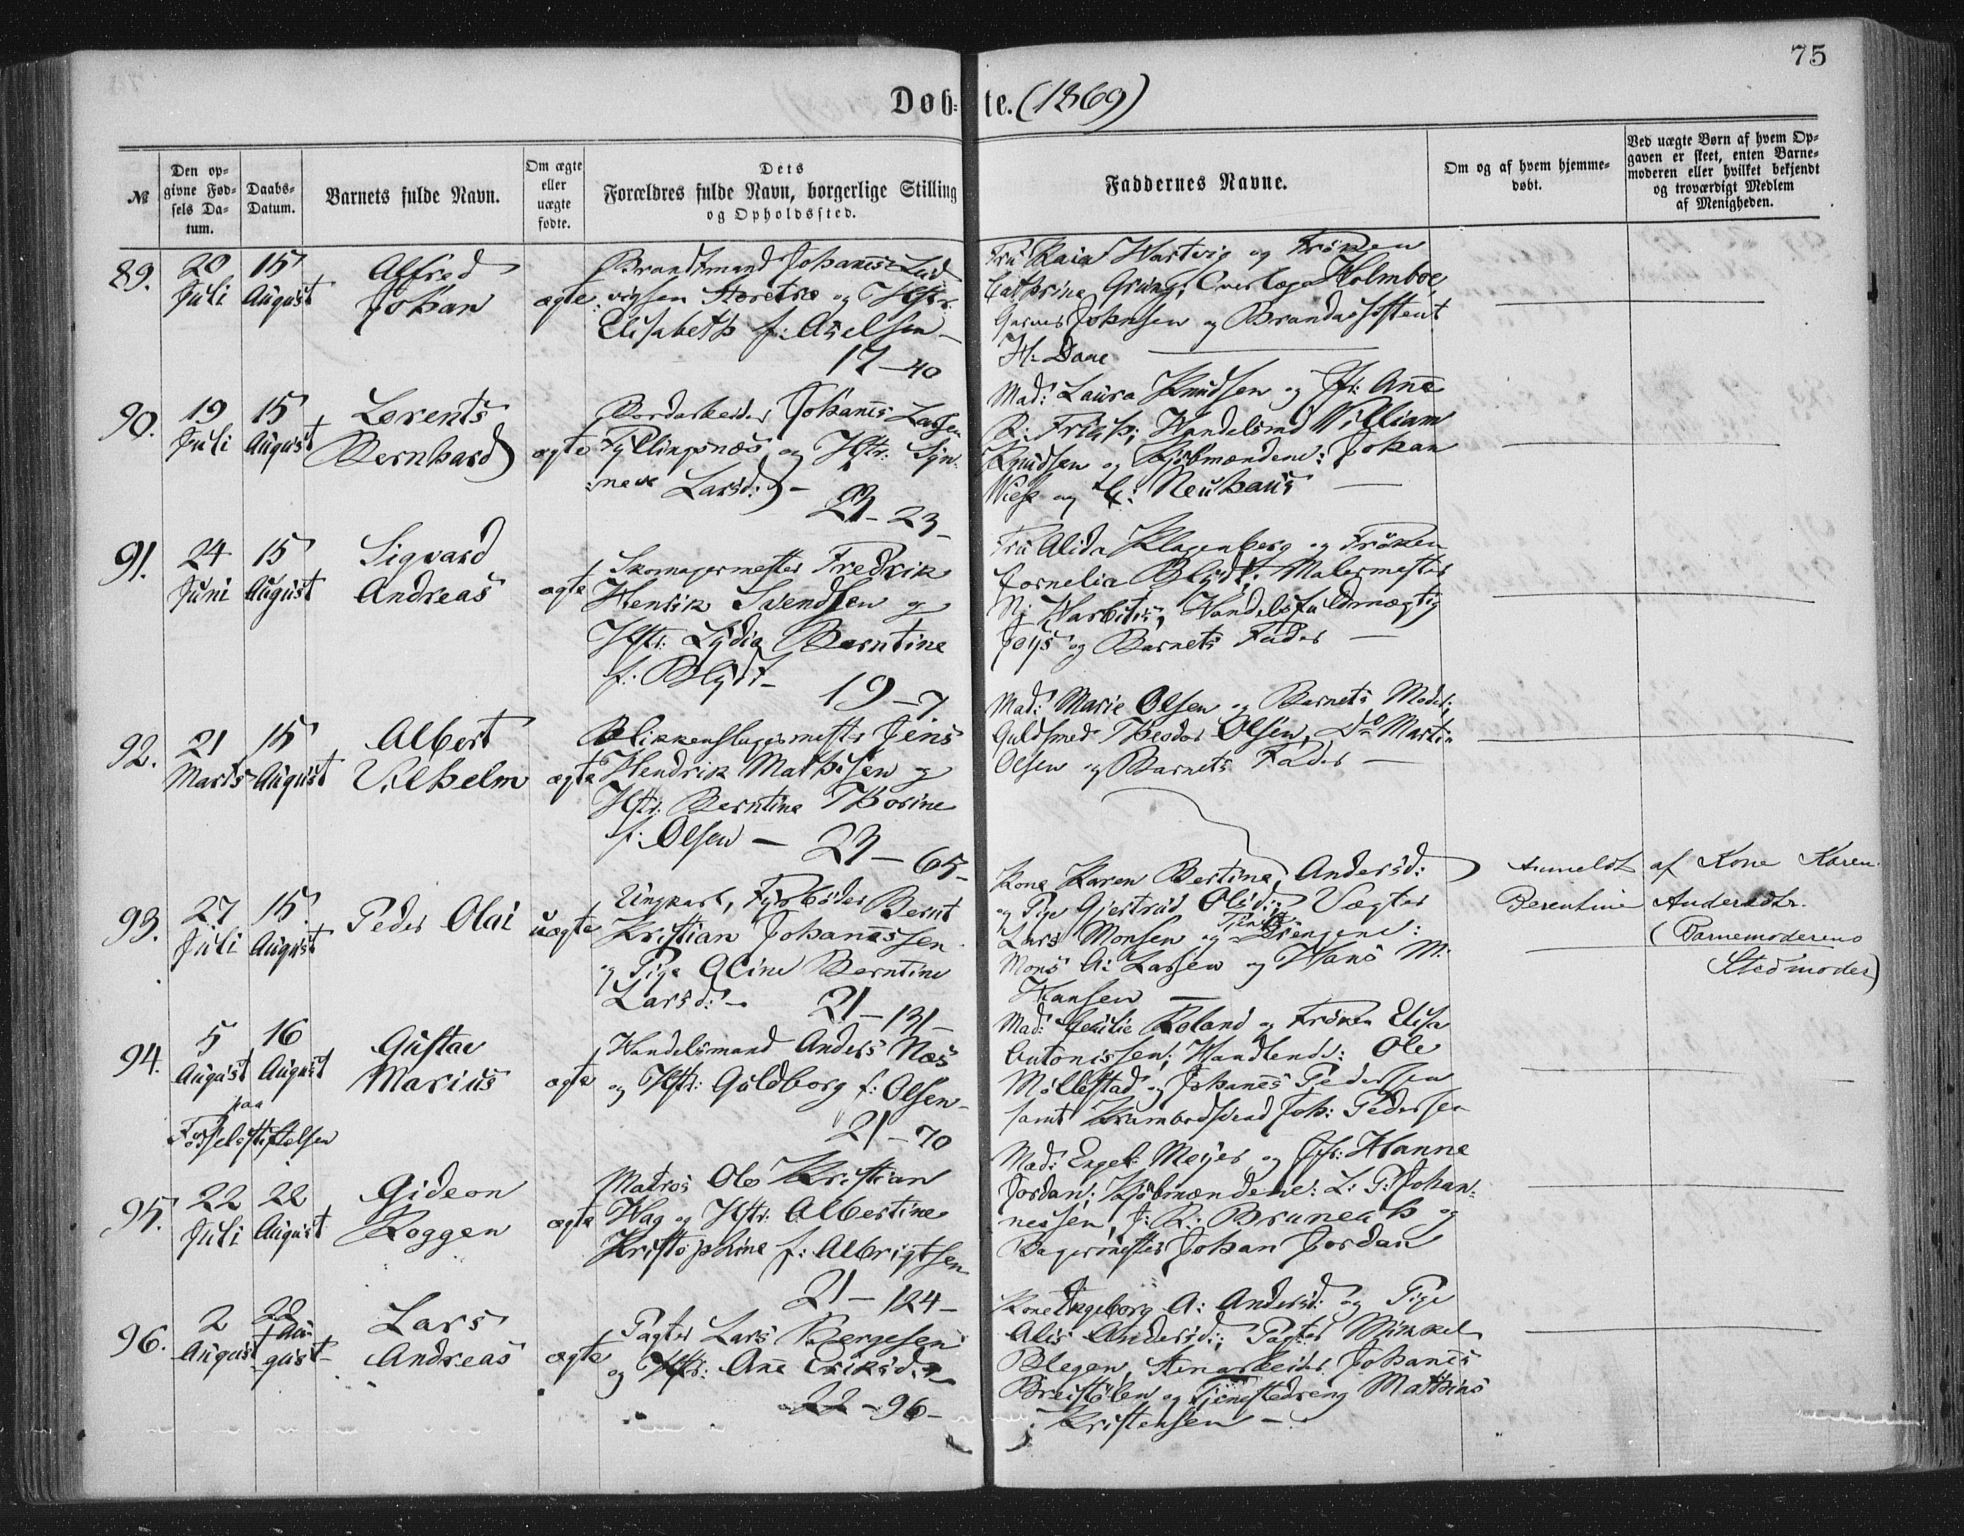 75
Døb-te. (1869)
№
Den opgivne Fødsels Datum.
Daabs-Datum.
Barnets fulde Navn.
Om ægte eller uægte fødte.
Dets Forældres fulde Navn, borgerlige Stilling og Opholdssted.
Faddernes Navne.
Om og af hvem hjemmedøbt.
Ved uægte Børn af hvem Opgaven er skeet, enten Barnemoderen eller hvilket bekjendt og troværdigt Medlem af Menigheden.
89. 20 Juli 15 August
Alfred Johan
ægte
Brandtmand Johanes Lud
vigsen og Hstr:
Elisabeth f: Axelsen
17-40
Fru Kaia Hartvig og Frøken
Cathrina Grung, Overlæge Holmboe
Johnsen og Brandassistent
H. Dane
90. 19 Juli 15 August
Lorents Bernhard
ægte
Johanes Larsen
Fyllingsnæs og Hstr: Syn-
neve Larsd: -
23-23
Mad: Laura Knudsen og Jfr: Ane
Handelsmd William
Knudsen og Kjøbmændene: Johan
Wiese og C: Neuhaus
91. 24 Juni 15 August
Sigvard Andreas
ægte
Skomagermester Fredrik
Henrik Svendsen og
Hstr: Lydia Berntine
f: Blydt
19-7
Fru Alida Klagenberg og Frøken
Cornelia Blydt; Malermester
Handelsfuldmægtig
Joys og Barnets Fader
92. 21 Marts 15 August
Albert Vilhelm
ægte
Blikkenslagermestr Jens
Hendrik Mathisen og
Hstr: Berntine Thorine
f: Olsen
23-65-
Mad: Marie Olsen og Barnets Moder;
Guldsmed Theodor Olsen, Do Martin
Olsen og Barnets Fader
93. 27 Juli 15 August
Peder Olai
uægte
Ungkarl, Fyrbøder Bernt
Kristian Johanessen
og Pige Oline Berntine
Larsd: -
21-131-
Kone Karen Bertine Andersd:
og Pige Gjertrud Olsd:; Vægter
Lars Monsen og Tjenste Drengene:
Mons A: Larsen og Hans M:
Hansen
Anmeldt af Kone Karen
Berentine Andersdtr.
(Barnemoderens
Stedmoder)
94. 5 August 16 August
paa
Fødselsstiftelsen
Gustav Marius
ægte
Handelsmand Anders Næs
og Hstr: Goldborg f: Olsen
21-70
Mad: Cecilie Roland og Frøken Elisa
Antonissen; Handlende: Ole
Møllestad og Johanes Pedersen
samt Krambodsvend Joh: Pedersen
95. 22 Juli 22 August
Gideon Roggen
ægte
Matros Ole Kristian
Hag og Hstr: Albertine
Kristophine f: Albrigtsen
21-124-
Mad: Engel: Meyer og Jfr: Hanne
Jordan; Kjøbmændene: L: G: Johan-
nessen, J: R: Brunech og
Bagermester Johan Jordan
96. 2 August 22 August
Lars Andreas
ægte
Pagter Lars Børgesen
og Hstr: Ane Eriksd:
22-96-
Kone Ingeborg A: Andersd: og Pige
Alis Andersd:; Pagter Mikkel
Blegen, Stenarbeider Johanes
Breistølen og Tjenstedreng Mathias
Kristensen